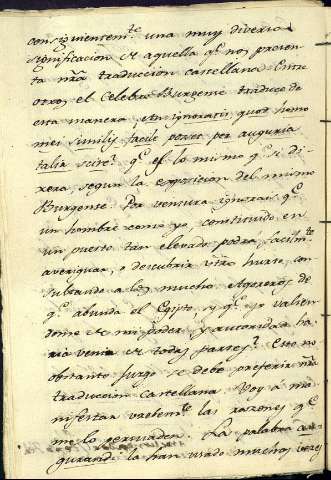 consiguientem.te una muy diversa
significacion de aquella q.e nos presen-
ta nrâ traduccion castellana. Entre
otros el Celebre Burgense traduce de
esta manera, An ignoratis quod homo
mei similis facile posset per auguria
talia scire? q.e es lo mismo q.e si di-
xera, segun la exposicion del mismo
Burgense. Por ventura ignorais q.e
un hombre como yo, constituido en
un puesto tan elevado podra facilm.te
averiguar, o descubrir vtro hurto, con-
sultando a los muchos Agoreros de
q.e abunda el Egipto, y q.e yo valien-
dome de mi poder, y autoridad ha-
ria venir de todas partes? Esto no
obstante juzgo se debe preferir nrâ
traduccion castellana. Voy á ma-
nifestar brevem.te las razones q.e
me lo persuaden. La palabra au-
gurandi la han usado muchas veces